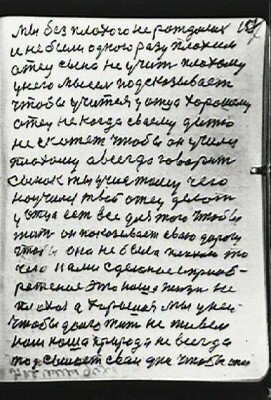 мы без плохого не рождались 157
и не были одного разу плохим
отец сына не учит плохому
у него мысли подсказывает
чтобы учится у отца хорошому
отец не когда своему дитю
не скажет чтобы он учился
плохому а всегда говорит
сынок ты учис тому чего
научил тебя отец делать
у отца ест все для того чтобы
жить он показывает свою дорогу
чтобы она не была плохой это
чего нами сделоное изриоб-
ретение это наша жизн не
плохоя а хорошоя мы у ней
чтобы долго жит не живем
нам наша природа не всегда
посылает свои дне чтобы они